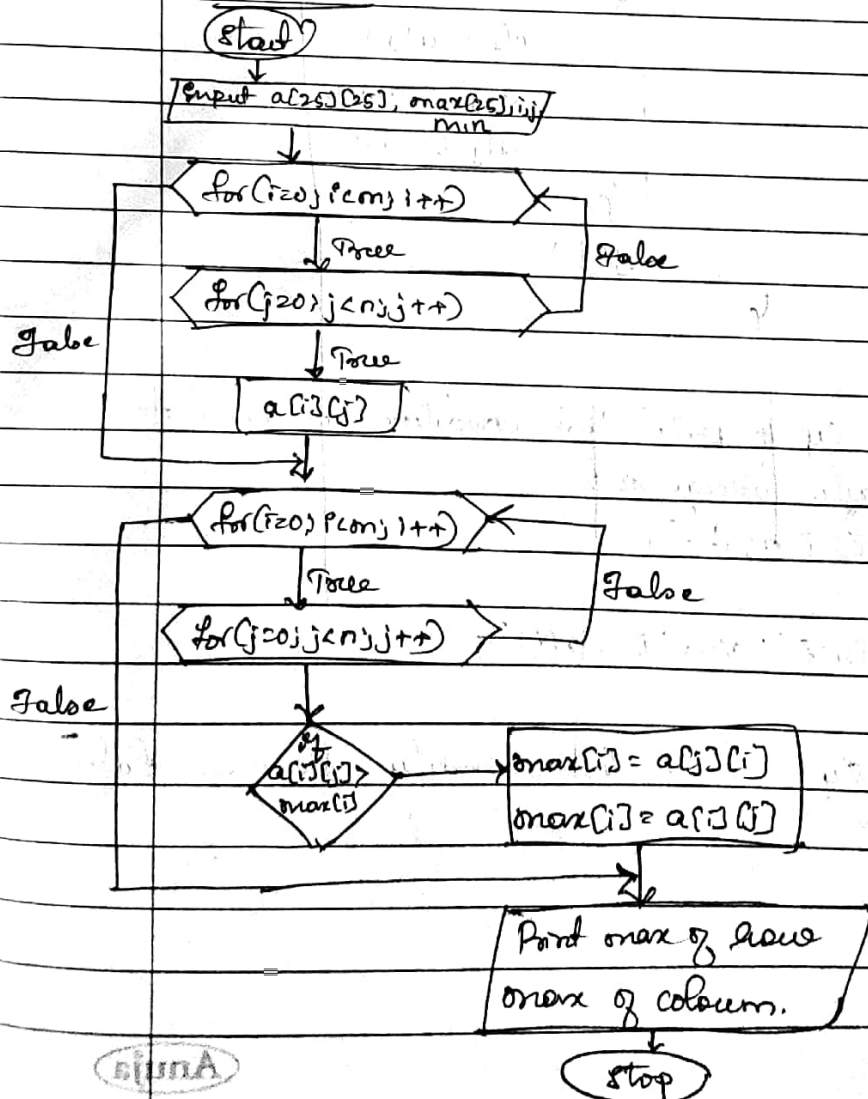 Start
Input a[25][25], max[25], i, j,
m, n
for(i=0; i<m; i++)
True
False
for(j=0; j<n; j++)
False
True
a[i][j]
for(i=0; i<m; i++)
True
False
for(j=0; j<n; j++)
False
if
a[i][j]>
max[i]
max[i] = a[j][i]
max[i] = a[i][j]
Print max of
max of coloum.
Stop
Anuja